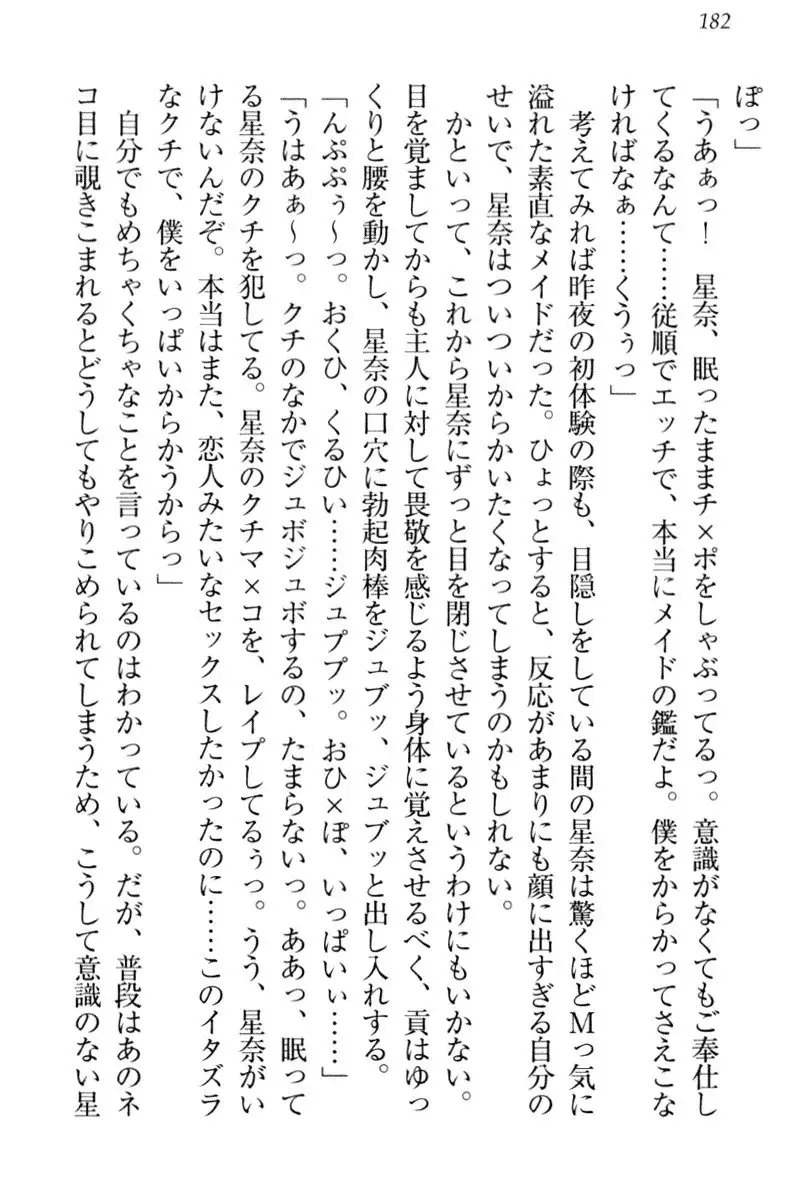 182
ぽっ」
「うあぁっ！　星奈、眠ったままチ×ポをしゃぶってるっ。意識がなくてもご奉仕し
てくるなんて……従順でエッチで、本当にメイドの鑑だよ。僕をからかってさえこな
ければなぁ……くうぅっ」
　考えてみれば昨夜の初体験の際も、目隠しをしている間の星奈は驚くほどＭっ気に
溢れた素直なメイドだった。ひょっとすると、反応があまりにも顔に出すぎる自分の
せいで、星奈はついついからかいたくなってしまうのかもしれない。
　かといって、これから星奈にずっと目を閉じさせているというわけにもいかない。
目を覚ましてからも主人に対して畏敬を感じるよう身体に覚えさせるべく、貢はゆっ
くりと腰を動かし、星奈の口穴に勃起肉棒をジュブッ、ジュブッと出し入れする。
「んぷぷぅ～っ。おくひ、くるひい……ジュププッ。おひ×ぽ、いっぱいぃ……」
「うはあぁ～っ。クチのなかでジュボジュボするの、たまらないっ。ああっ、眠って
る星奈のクチを犯してる。星奈のクチマ×コを、レイプしてるぅっ。うう、星奈がい
けないんだぞ。本当はまた、恋人みたいなセックスしたかったのに……このイタズラ
なクチで、僕をいっぱいからかうからっ」
　自分でもめちゃくちゃなことを言っているのはわかっている。だが、普段はあのネ
コ目に覗きこまれるとどうしてもやりこめられてしまうため、こうして意識のない星